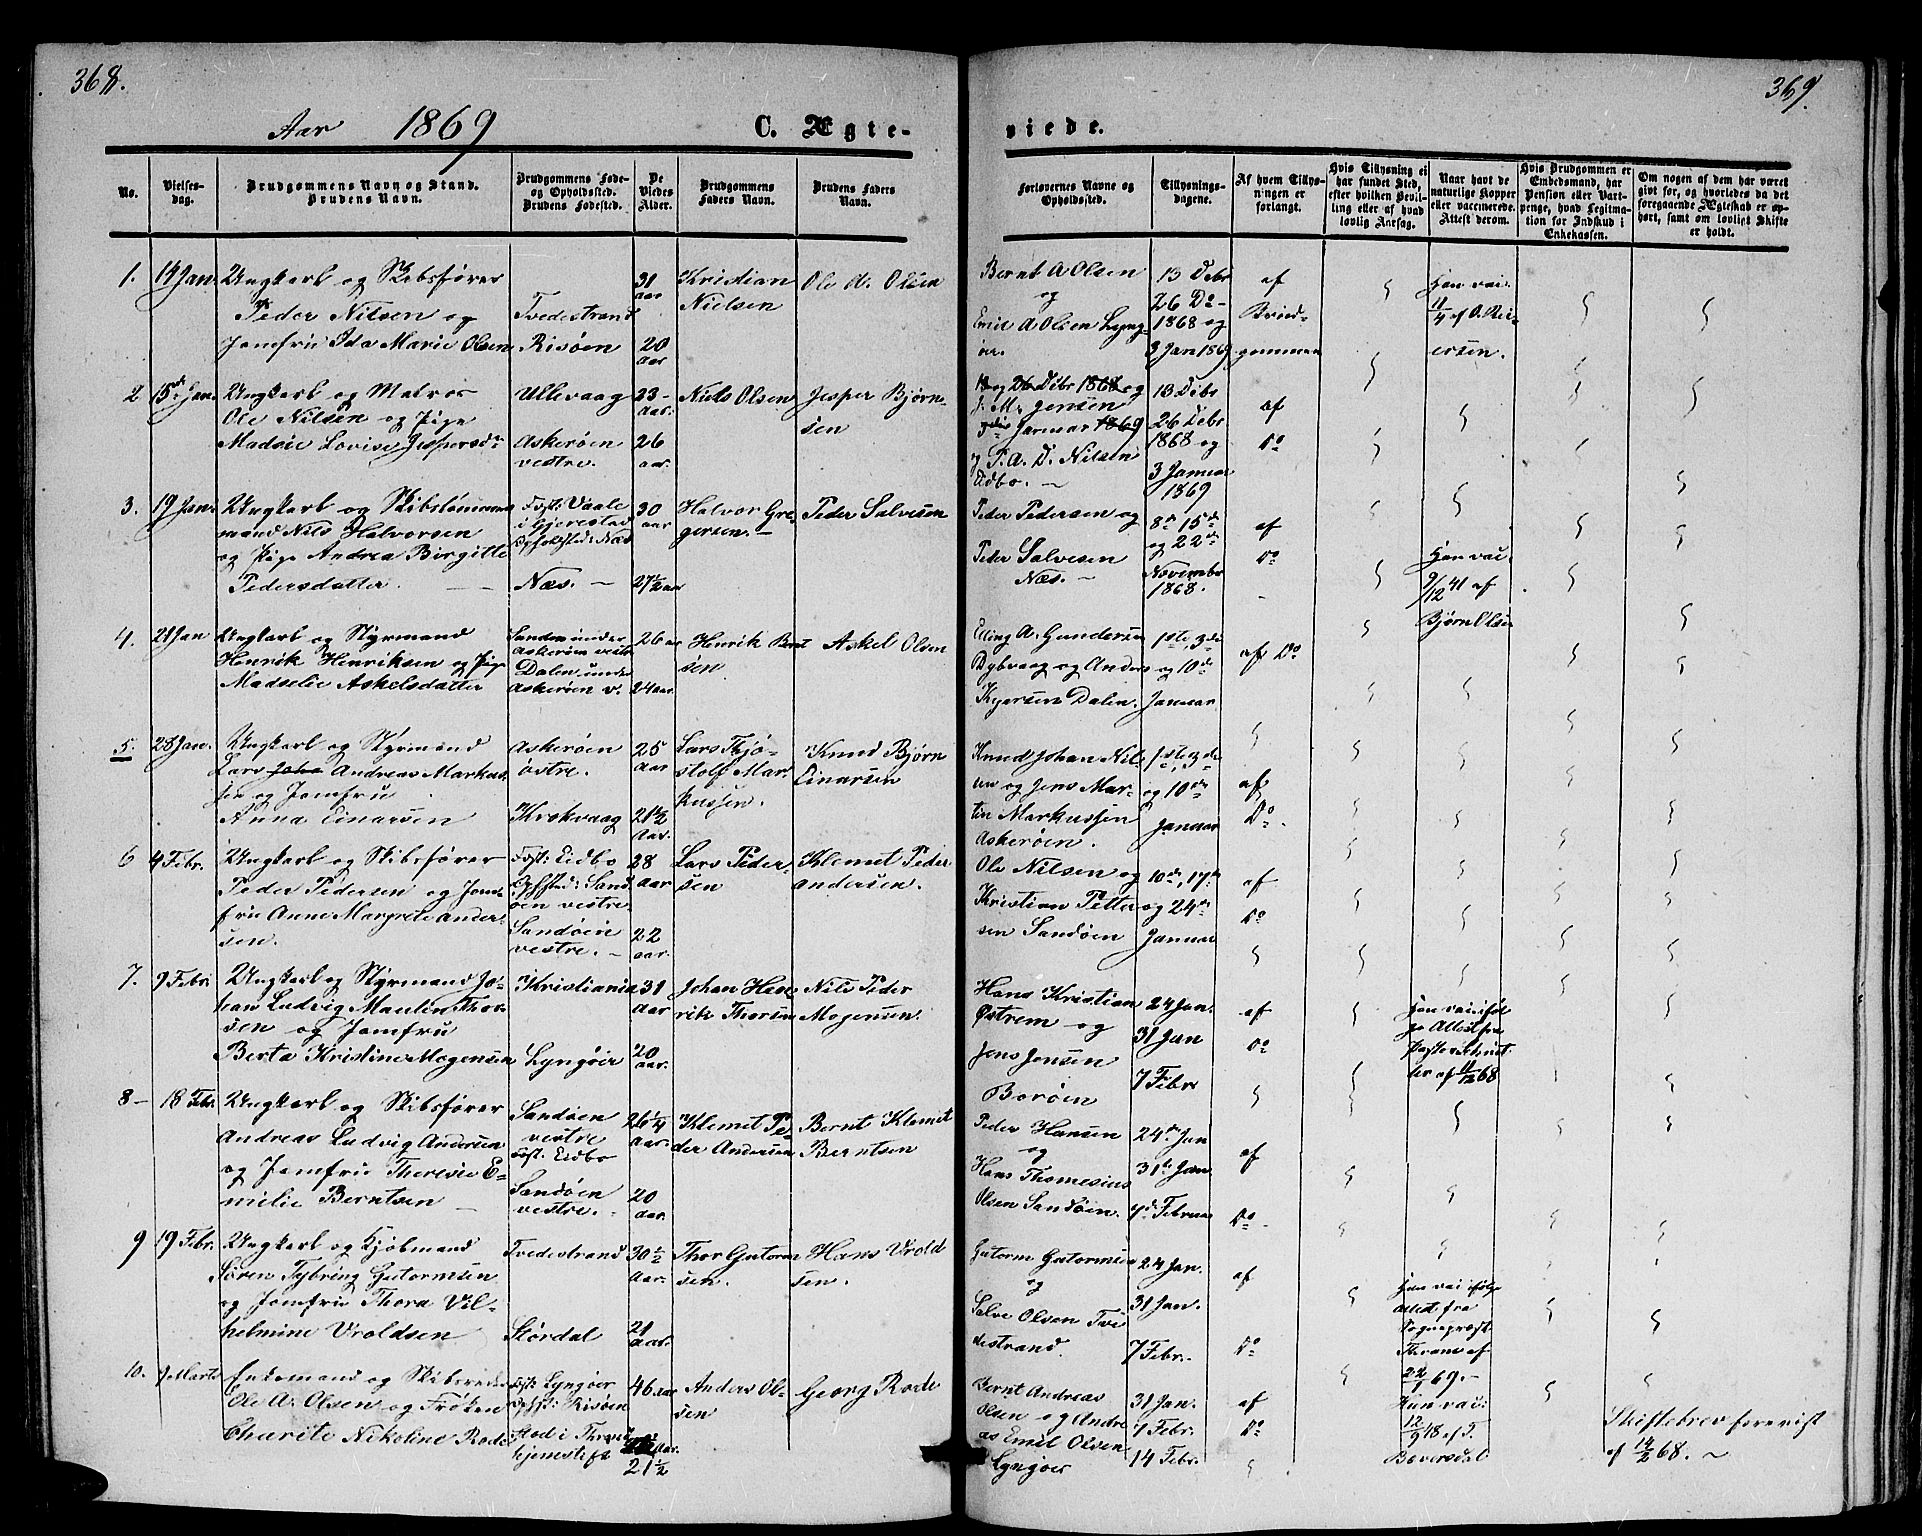 368.
Aar 1869 C. Ægte-
No.
Vielses-
dag.
Brudgommens Navn og Stand.
Brudens Navn.
Brudgommens Føde-
og Opholdssted.
Brudens Fødested.
De
Viedes
Alder.
Brudgommens
Faders Navn.
Brudens Faders
Navn.
1. 14 Jan. Ungkarl og Skibsfører 31 Kristian Ole A. Olsen
aar Nielsen
Peder Nilsen og Tvedestrand
Jomfru Ida Marie Olsen Risøen 20
aar
2 15de Jan. Ungkarl og Matros Ullevaag 23- Niels Olsen Jesper Bjørn-
Ole Nilsen og Pige aar. sen
Madsie Lovise Jespersdr Askerøen 26
vestre. aar.
3. 19 Jan. Ungkarl og Skibstømmer- Føst: Vaale 30 Halvor Gre- Peder Salvesen
mand Nils Halvorsen i Gjerestad aar gersen.
og Pige Andrea Birgitte Opholdsted: Næs
Pedersdatter. Næs. 27½ aar
4. 21 Jan Ungkarl og Styrmand Sanden under 26 aar Henrik Bernt Askel Olsen
Henrik Henriksen og Pige Askerøen vestre sen
Madselie Askelsdatter Dalen under
Askerøen v. 24 aar.
5. 28 Jan. Ungkarl og Styrmand Askerøen 25 Lars Thjø- Knud Bjørn
Lars Andreas Markus- østre. aar stolf Mar- Einarsen
sen og Jomfru kussen.
Anna Einarsen Krokvaag 21½
aar.
6 4 Febr. Ungkarl og Skibsfører Føst: Eidbo 28 Lars Peder- Klemet Peder
Peder Pedersen og Jom- Ophsted: Sand- aar sen Andersen.
fru Anne Margrete Ander- øen vestre.
sen. Sandøen 22
vestre. aar.
7. 9 Febr. Ungkarl og Styrmand Jo- Kristiania 31 Johan Hen- Nils Peder
han Ludvig Maulin Thor- aar rik Thorsen Mogensen.
sen og Jomfru
Berta Kristine Mogensen Lyngøer 20
aar.
8 18 Febr. Ungkarl og Skibsfører Sandøen 26¼ Klemet Pe- Bernt Klemet
Andreas Ludvig Andersen vestre aar. der Andersen Berntsen
og Jomfru Theresie E- Føst: Eidbo
milie Berntsen Sandøen 20
vestre. aar.
9 19 Febr. Ungkarl og Kjøbmand Tvedestrand 30½ Thor Gutorm- Hans Vrold-
Søren Tybring Gutormsen aar. sen. sen.
og Jomfru Thora Vil-
helmine Vroldsen Størdal 21
aar.
10. Marts Enkemand og Skibsreder Føst: Lyngøer 46 aar Anders Ol- Georg Rode
Ole A. Olsen og Frøken Ophst: Risøen sen
Charite Nikoline Rode Stod i Thrond-
hjemstift 21½
369.
viede.
Forlovernes Navne og
Opholdssted.
Tillysnings-
dagene.
Af hvem Tillys-
ningen er
forlangt.
Hvis Tillysning ei
har fundet Sted,
efter hvilken Bevil-
ling eller af hvad
lovlig Aarsag.
Naar havt de
naturlige Kopper
eller vaccinerede.
Attest derom.
Hvis Brudgommen er
Embedsmand, har
Pension eller Vart-
penge, hvad Legitima-
tion for Indskud i
Enkekassen.
Om nogen af dem har været
gift før, og hvorledes da det
foregaaende Ægteskab er op-
hørt, samt om lovligt Skifte
er holdt.
Bernt A Olsen 13 Debr af Han vac.
og 26 Do 11/4 af O. Rei-
Emil A Olsen Lyng- 1868 og Brud- ersen.
øer. 3 Jan 1869 gommen
13 og 26 Debr 1868 og 13 Debr
J. M. Jensen 26 Debr af
Januar 1869 1868 og Do
og T. A. D. Nilsen 3 Januar
Eidbo. 1869
Peder Pedersen og 8de 15de af
Peder Salvesen og 22de Do Han vac.
Næs. November 9/12 41 af
1868. Bjørn Olsen
Elling A. Gundersen 1ste, 3de
Dybvaag og Anders og 10de af Do
Kgersen Dalen. Januar.
Knud Johan Nil- 1ste, 3de
sen og Jens Mar- og 10de af
tin Markussen Januar Do
Askerøen.
Ole Nilsen og 10de, 17de af
Kristian Petter- og 24de Do
sen Sandøen Januar
Hans Kristian 24 Jan. af Han vac. iføl-
Østrem og 31 Jan Do ge Attest fra
Jens Jensen 7 Febr.
Borøen af 11/12 68
Peder Hansen 24de Jan
og 31te Jan af
Hans Thomesius
Olsen Sandøen. 7de Februar Do
Gutorm Gutormsen 24 Jan. af Han vac. ifølge
og 31 Jan. Attest fra
Salve Olsen Tve- Sognepræst
destrand. 7 Febr. Do Thrane af
22/1 69.
Bernt Andreas 31 Jan. af Hun vac:
Olsen og Andre- 7 Febr. Do 12/9 48 af T.
as Emil Olsen 14 Febr. Boversdal
Lyngøer
Skiftebrev forevist
af 14/2 68.